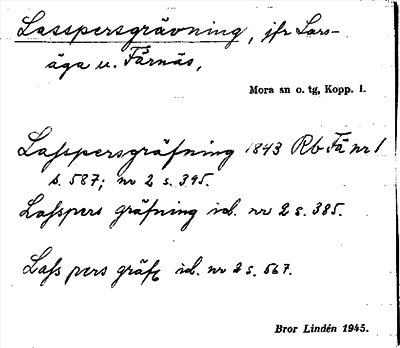 Lasspersgrävning, jfr Lars-
äga u. Färnäs,
Mora sn o. tg, Kopp. l.
Lafspersgräfning 1843 Rb Fä nr 1
s. 587; nr 2 s. 395.
Lafspers gräfning id. nr 2 s. 385.
Lafs pers gräf id. nr 2 s. 567.
Bror Lindén 1945.